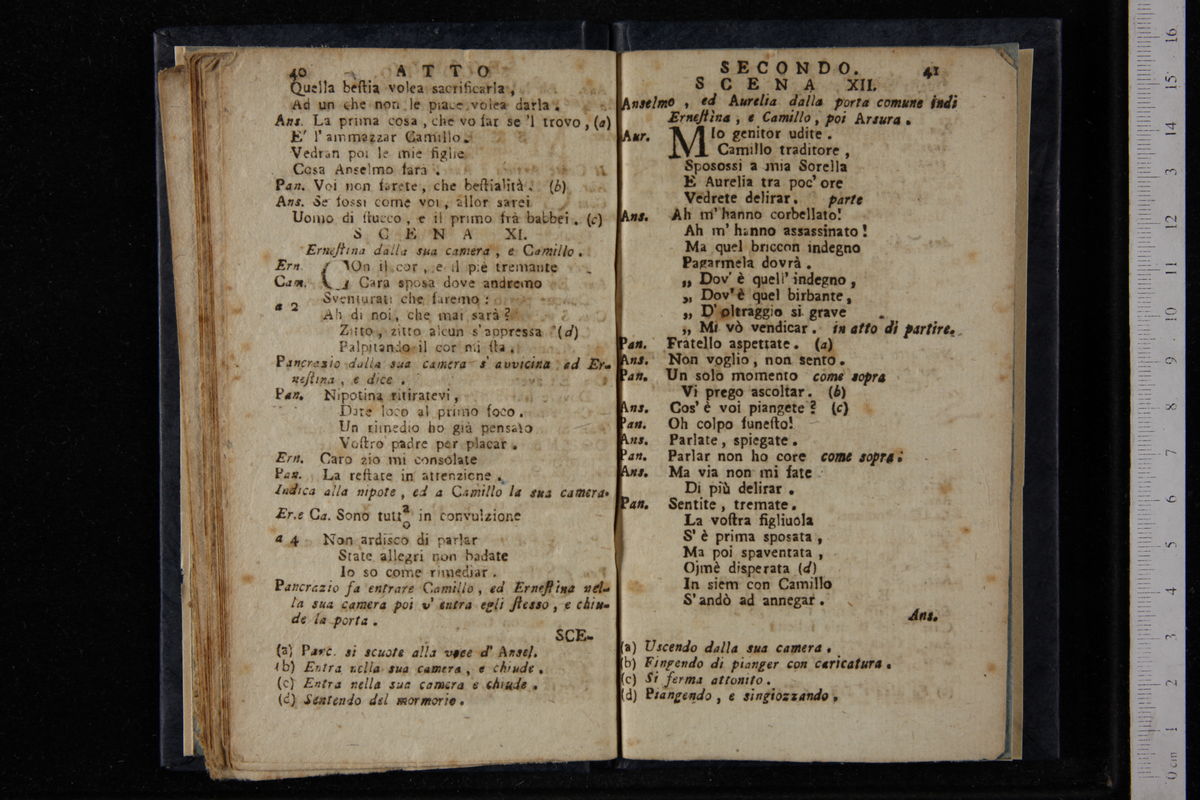 40 ATTO
Quella beſtia volea sacrificarla,
Ad un che non le piace volea darla.
Ans. La prima cosa, che vo far se 'l trovo, (a)
E' l' ammazzar Camillo.
Vedran poi le mie figlie
Cosa Anselmo farà.
Pan. Voi non farete, che beſtialità. (b)
Ans. Se fossi come voi, allor sarei
Uomo di ſtucco, e il primo frà babbei. (c)
SCENA XI.
Erneſtina dalla sua camera, e Camillo.
Ern. COn il cor, e il piè tremante
Cam. Cara sposa dove andremo
a 2 Sventurati che faremo:
Ah di noi, che mai sarà?
Zitto, zitto alcun s'appressa (d)
Palpitando il cor mi ſta.
Pancrazio dalla sua camera s' avvicina ed Er-
neſtina, e dice.
Pan. Nipotina ritiratevi,
Date loco al primo foco.
Un rimedio ho già pensato
Voſtro padre per placar.
Ern. Caro zio mi consolate
Pan. La reſtate in attenzione.
Indica alla nipote, ed a Camillo la sua camera.
Er.e Ca. Sono tutt a/o in convulzione
a 4 Non ardisco di parlar
State allegri non badate
Io so come rimediar.
Pancrazio fa entrare Camillo, ed Erneſtina nel-
la sua camera poi v' entra egli ſtesso, e chiu-
de la porta.
SCE-
(a) Panc. si scuote alla voce d' Ansel.
(b) Entra nella sua camera, e chiude.
(c) Entra nella sua camera e chiude.
(d) Sentendo del mormorio.
SECONDO. 41
SCENA XII.
Anselmo, ed Aurelia dalla porta comune indi
Erneſtina, e Camillo, poi Arsura.
Aur. MIo genitor udite.
Camillo traditore,
Sposossi a mia Sorella
E Aurelia tra poc' ore
Vedrete delirar. parte
Ans. Ah m' hanno corbellato!
Ah m' hanno assassinato!
Ma quel briccon indegno
Pagarmela dovrà.
„ Dov' è quell' indegno,
„ Dov' è quel birbante,
„ D' oltraggio si grave
„ Mi vò vendicar. in atto di partire.
Pan. Fratello aspettate. (a)
Ans. Non voglio, non sento.
Pan. Un solo momento come sopra
Vi prego ascoltar. (b)
Ans. Cos' è voi piangete? (c)
Pan. Oh colpo funeſto!
Ans. Parlate, spiegate.
Pan. Parlar non ho core come sopra.
Ans. Ma via non mi fate
Di più delirar.
Pan. Sentite, tremate.
La voſtra figliuola
S' è prima sposata,
Ma poi spaventata,
Ojmè disperata (d)
In siem con Camillo
S' andò ad annegar.
Ans.
(a) Uscendo dalla sua camera.
(b) Fingendo di pianger con caricatura.
(c) Si ferma attonito.
(d) Piangendo, e singiozzando.
0 cm 1 2 3 4 5 6 7 8 9 10 11 12 13 14 15 16